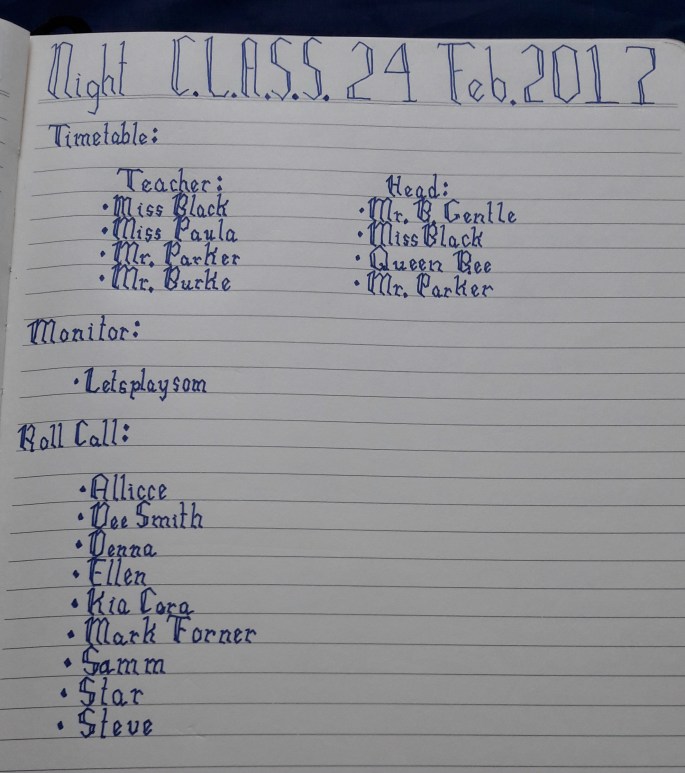 Night C.L.A.S.S. 24 Feb. 2017
Timetable:
Teacher:
• Miss Black
• Miss Paula
• Mr. Parker
• Mr. Burke
Head:
• Mr. B. Gentle
• Miss Black
• Queen Bee
• Mr. Parker
Monitor:
• Letsplaysom
Roll Call:
• Allicce
• Dee Smith
• Denna
• Ellen
• Kia Cora
• Mark Forner
• Samm
• Star
• Steve